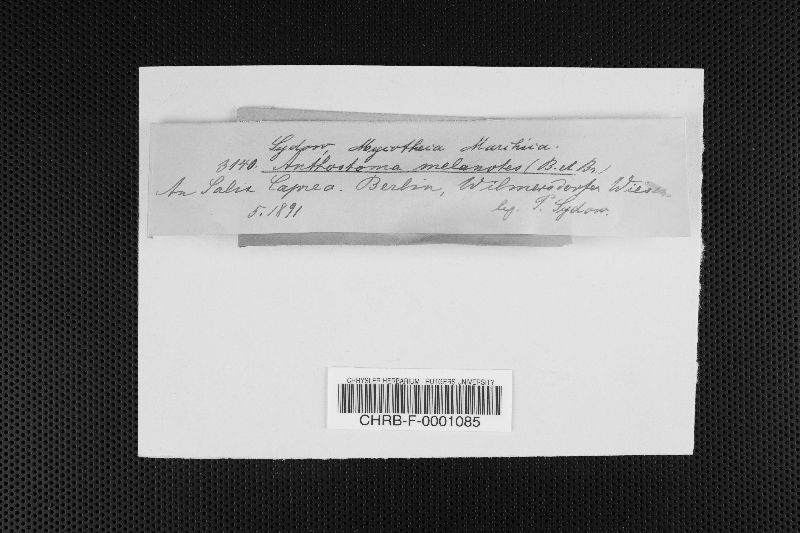 Sydow, Mycotheca Marchica.
3140. Anthostoma melanotes (B. et Br.)
An Salix Caprea. Berlin, Wilmersdorfer Wiesen
5. 1891 leg. P. Sydow.
CHRYSLER HERBARIUM - RUTGERS UNIVERSITY
CHRB-F-0001085